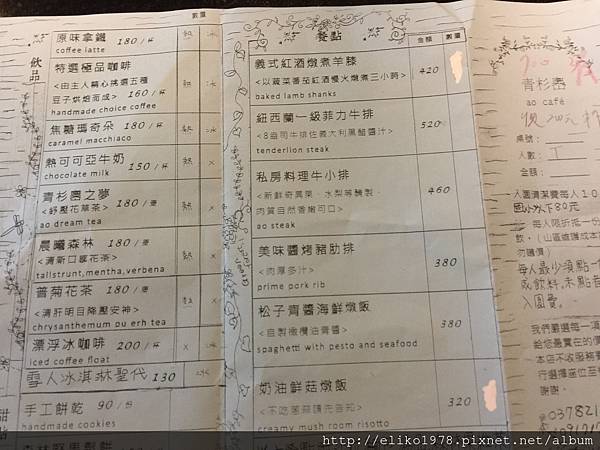 數量
飲品
原味拿鐵 180/杯 熱 冰
coffee latte
特選極品咖啡
<由主人精心挑選五種
豆子烘焙而成> 160/杯
handmade choice coffee
焦糖瑪奇朵 180/杯 熱 冰
caramel macchiaco
熱可可亞牛奶 150/杯 熱 x
chocolate milk
青杉園之夢 180/壺
<紓壓花草茶>
ao dream tea
晨曦森林 180/壺 熱 x
<清新口感花茶>
tallstrunt,mentha,verbena
普菊花茶 180/壺 熱 x
<清肝明目降壓安神>
chrysanthemum pu erh tea
漂浮冰咖啡 200/杯 x 冰
iced coffee float
雪人冰淇淋聖代 130 冰
手工餅乾 90/份
handmade cookies
餐點 金額 數量
義式紅酒燉煮羊膝 420
<以蔬菜番茄紅酒慢火燉煮三小時>
baked lamb shanks
紐西蘭一級菲力牛排 520
<8盎司牛排佐義大利黑醋醬汁>
tenderlion steak
私房料理牛小排 460
<新鮮奇異果、水梨等醃製,
肉質自然香嫩可口>
ao steak
美味醬烤豬肋排 380
<肉厚多汁>
prime pork rib
松子青醬海鮮燉飯 380
<自製橄欖油青醬>
spaghetti with pesto and seafood
奶油鮮菇燉飯 320
<不吃蔥蒜請先告知>
creamy mush room risotto
青杉園
ao café
桌號:
人數:
金額:
人園清潔費每人10
國小以下80元
每人限折抵一份
飲。(山區道護成本
勿購價)
每人最少須點一
成飲料,未點者
入園費。
我們嚴選每一項
給您最實在的價
本店不收服務費
行選擇座位至櫃
謝謝。
037821
http://eliko1978.pixnet.net/album